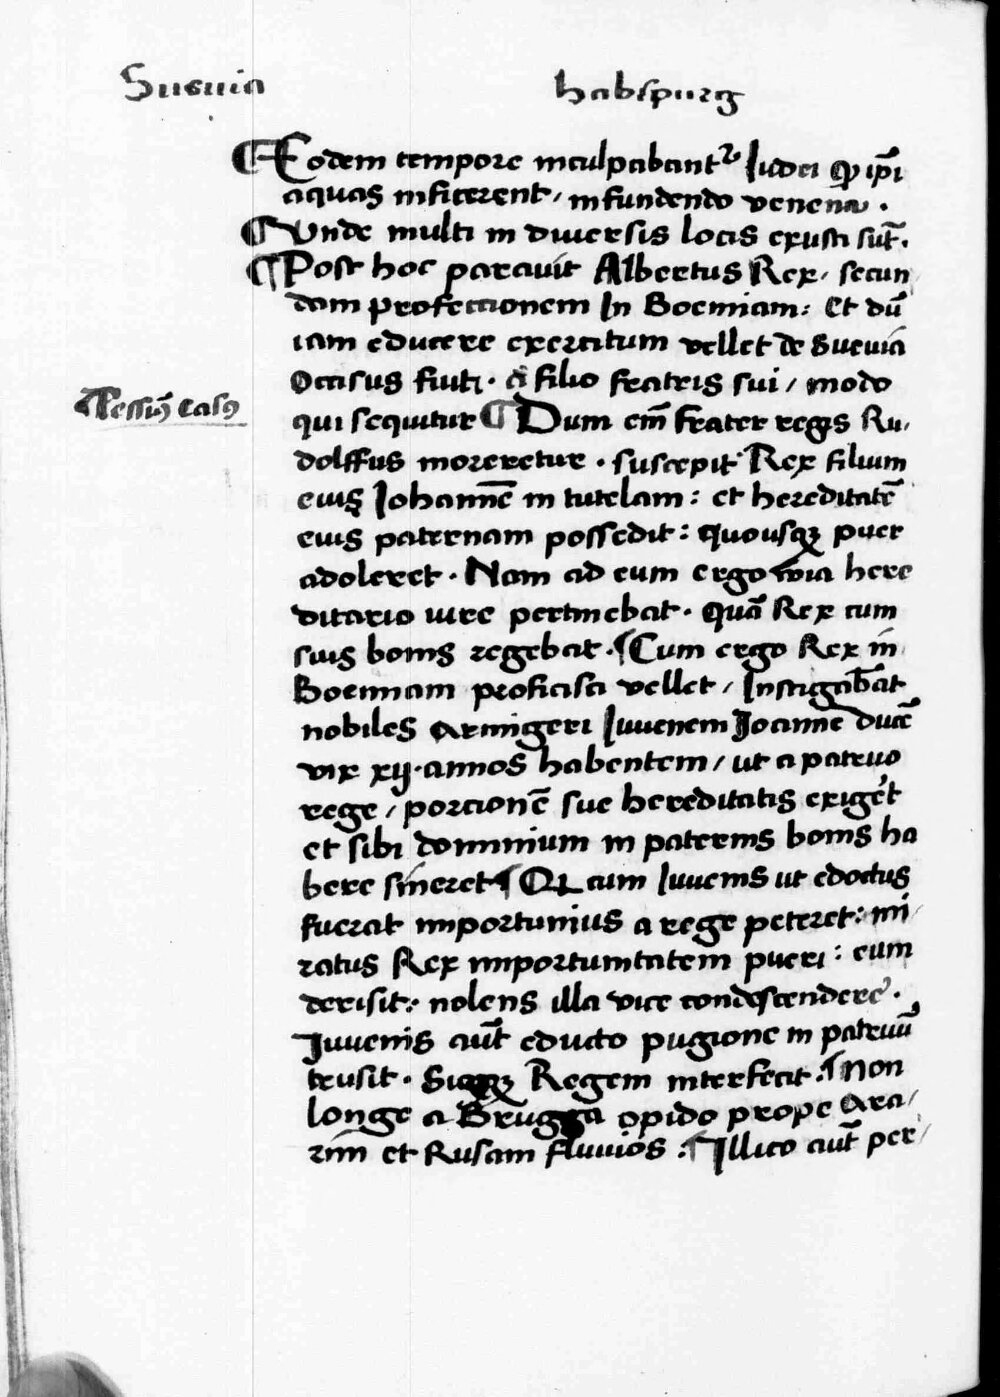 Sueuia
habspurg
¶ Eodem tempore inculpabantr Iudei qp ip̄i
aquas inficerent, infundendo venena .
¶ Vnde multi in diuersis locis exusti sūt.
¶ Post hoc parauit Albertus Rex, secun
dam profectionem In Boemiam: Et dū
iam educere exercitum vellet de Sueuia
Occisus fiuti. a filio fratris sui, modo
Pessimꝰ casꝰ
qui sequitur ¶ Dum em̄ frater regis Ru,
dolffus moreretur . suscepit Rex filium
eius Iohannē in tutelam: et hereditatē
eius paternam possedit: quousqꝫ puer
adoleret . Nam ad eum ergo via here
ditario iure pertinebat. Quā Rex cum
suis bonis regebat. ¶ Cum ergo Rex in
Boemiam proficisci vellet, Instigab̄at
nobiles armigeri Iuuenem Joanne ducē
vix xij. annos habentem, ut a patruo
rege, porcionē sue hereditatis exiget
et sibi dominium in paternis bonis ha
bere sineret ¶ Qꝫ cum Iuuenis ut edoctus
fuerat importunius a rege peteret: mi,
ratus Rex importunitatem pueri: eum
derisit: nolens illa vice condescendere .
Iuuenis aūt educto pugione in patruū
trusit. Sicqꝫ Regem interfecit. ¶ Non
longe a Brugga opido prope Ara,
rim et Rusam fluuios . ¶ Illico aūt per,